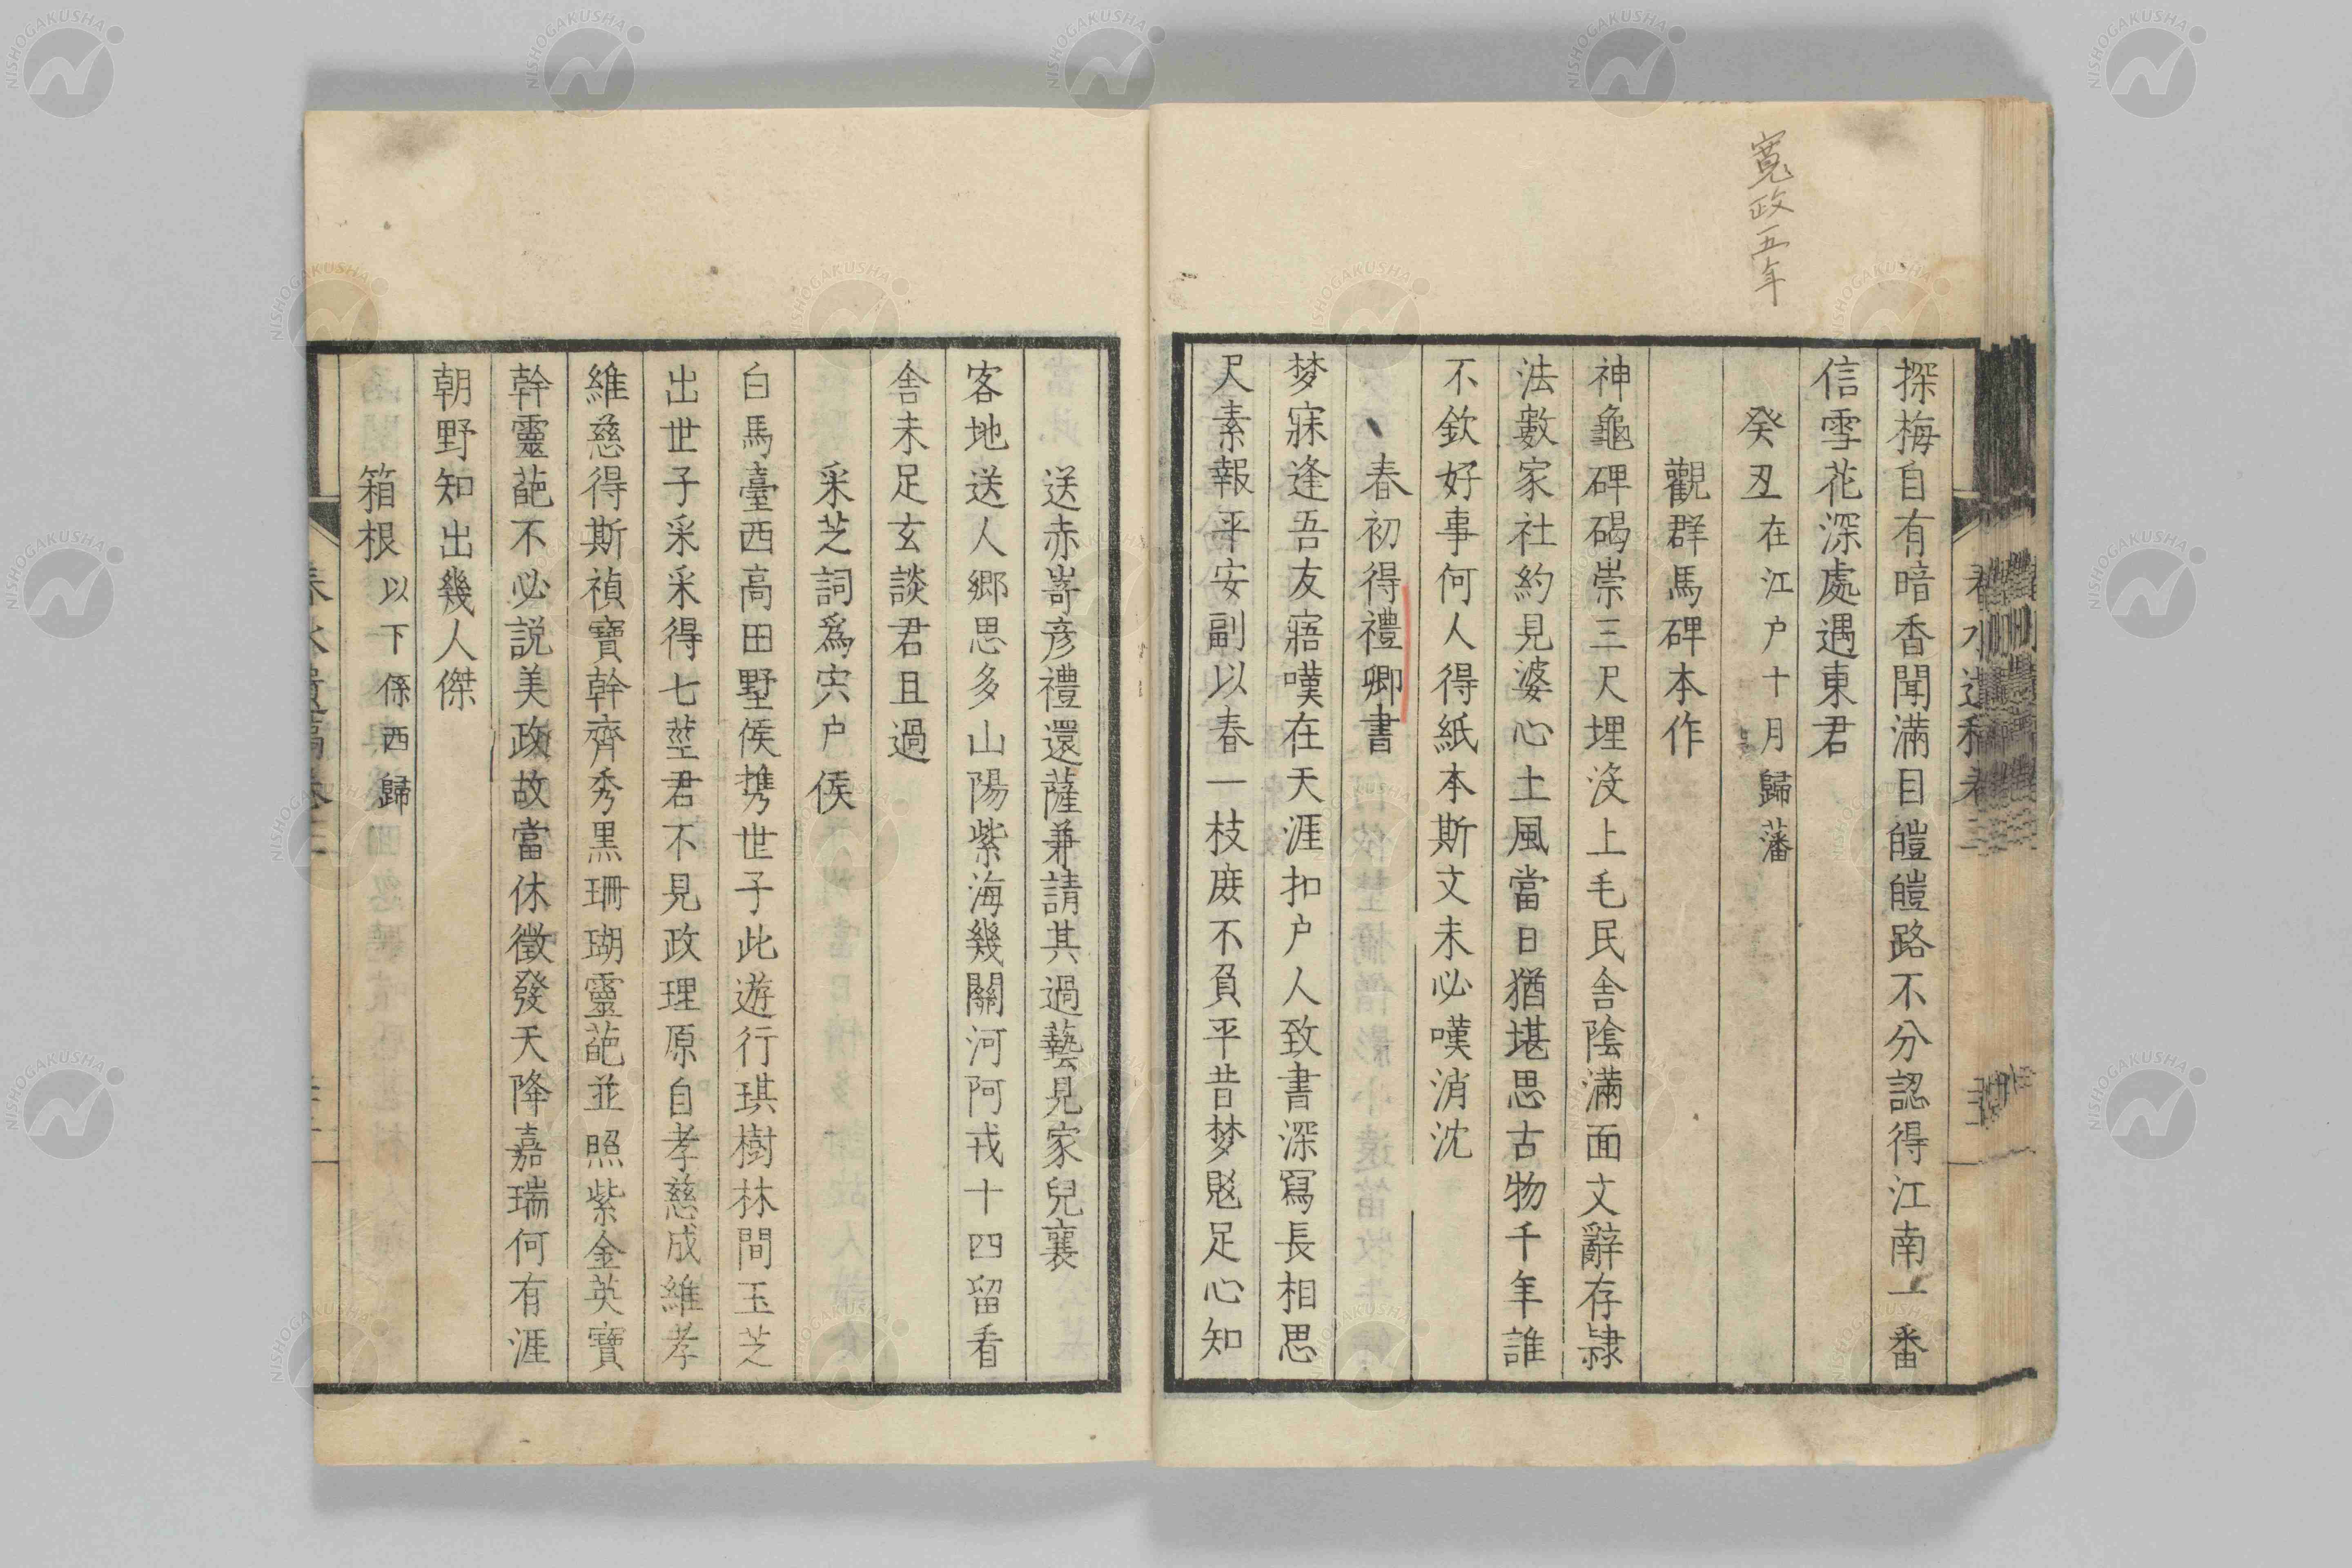 寛政五年
探梅自有暗香聞滿目皚皚路不分認得江南一番
信雪花深處遇東君
癸丑在江戸十月歸藩
觀群馬碑本作
神龜碑碣崇三尺埋沒上毛民舎陰滿面文辭存隷
法數家社約見婆心土風當日猶堪思古物千年誰
不欽好事何人得紙本斯文未必嘆消沈
春初得禮卿書
梦寐逢吾友寤嘆在天涯扣户人致書深寫長相思
尺素報平安副以春一枝庻不負平昔梦魂足心知
送赤嵜彦禮還薩兼請其過藝見家兒襄
客地送人郷思多山陽紫海幾關河阿戎十四留看
舎未足玄談君且過
采芝詞爲宍户侯
白馬臺西高田墅侯携世子此遊行琪樹林間玉芝
出世子采采得七莖君不見政理原自孝慈成維孝
維慈得斯禎寶幹齊秀黒珊瑚靈葩並照紫金英寶
幹靈葩不必説美政故當休徵發天降嘉瑞何有涯
朝野知出幾人傑
箱根以下係西歸
NISHOGAKUSHA